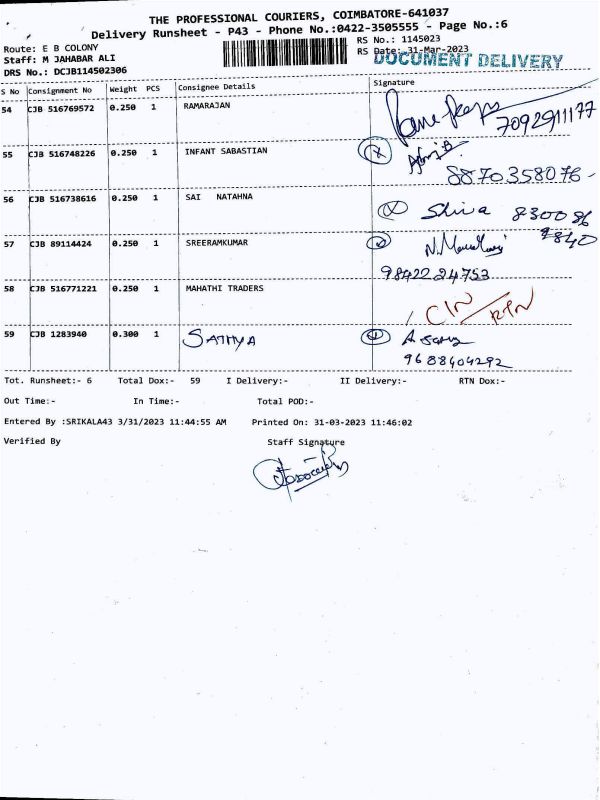 THE PROFESSIONAL COURIERS, COIMBATORE-641037
Delivery Runsheet - P43 - Phone No.:0422-3505555 - Page No.:6
Route: E B COLONY RS No.: 1145023
Staff: M JAHABAR ALI RS Date: 31-Mar-2023
DOCUMENT DELIVERY
DRS No.: DCJB114502306
S No Consignment No Weight PCS Consignee Details Signature
54 CJB 516769572 0.250 1 RAMARAJAN
7092911177
55 CJB 516748226 0.250 1 INFANT SABASTIAN
8870358076-
56 CJB 516738616 0.250 1 SAI NATAHNA Shiva 830086
840
57 CJB 89114424 0.250 1 SREERAMKUMAR
9842224753
58 CJB 516771221 0.250 1 MAHATHI TRADERS / CIN/RTN
59 CJB 1283940 0.300 1 SATHYA
9688404292
Tot. Runsheet:- 6 Total Dox:- 59 I Delivery:- II Delivery:- RTN Dox:-
Out Time:- In Time:- Total POD:-
Entered By :SRIKALA43 3/31/2023 11:44:55 AM Printed On: 31-03-2023 11:46:02
Verified By Staff Signature